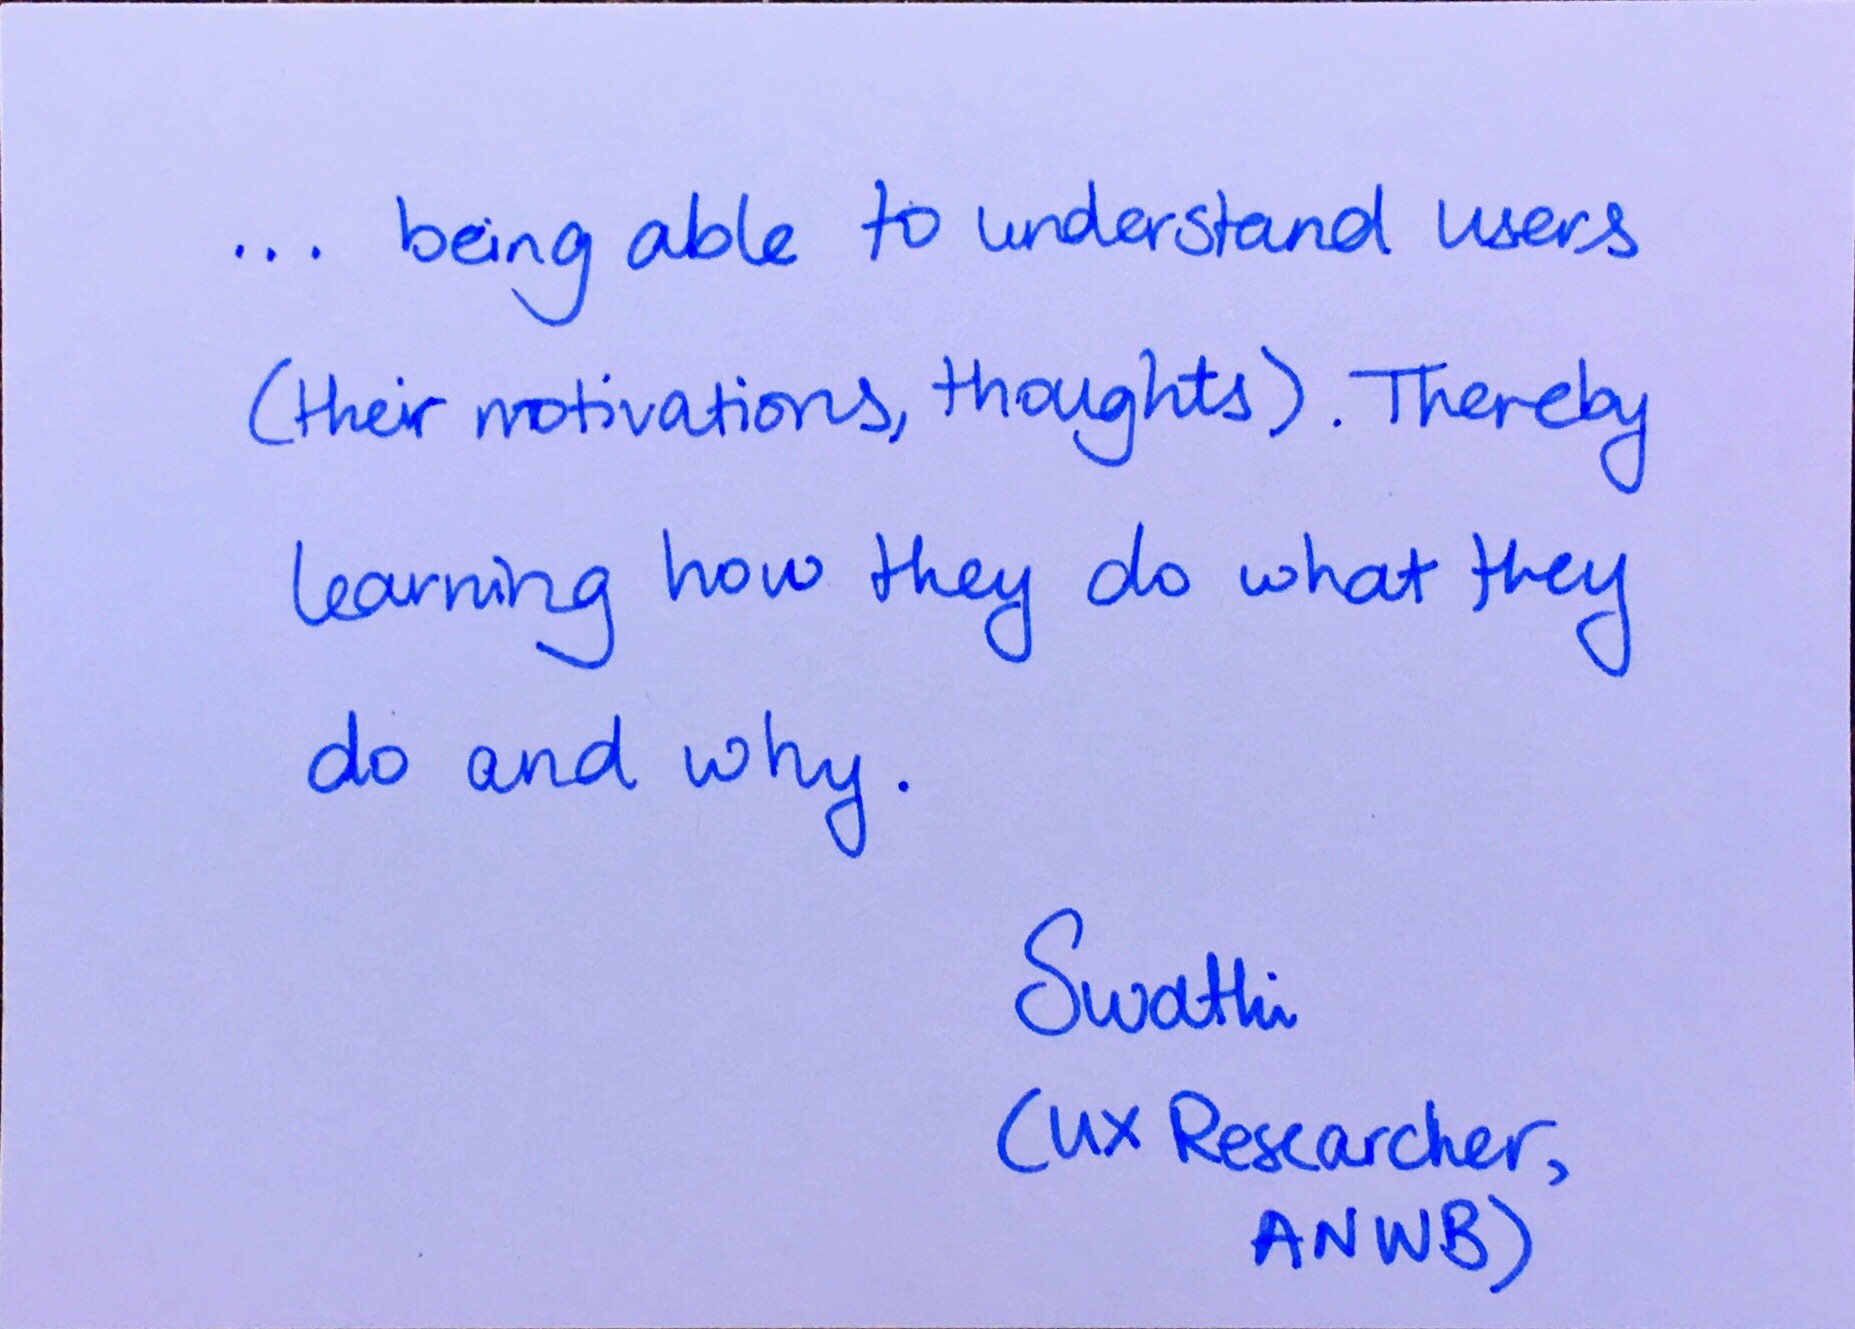 ... being able to understand users
(their motivations, thoughts). Thereby
learning how they do what they
do and why.
Swathi
(UX Researcher,
ANWB)